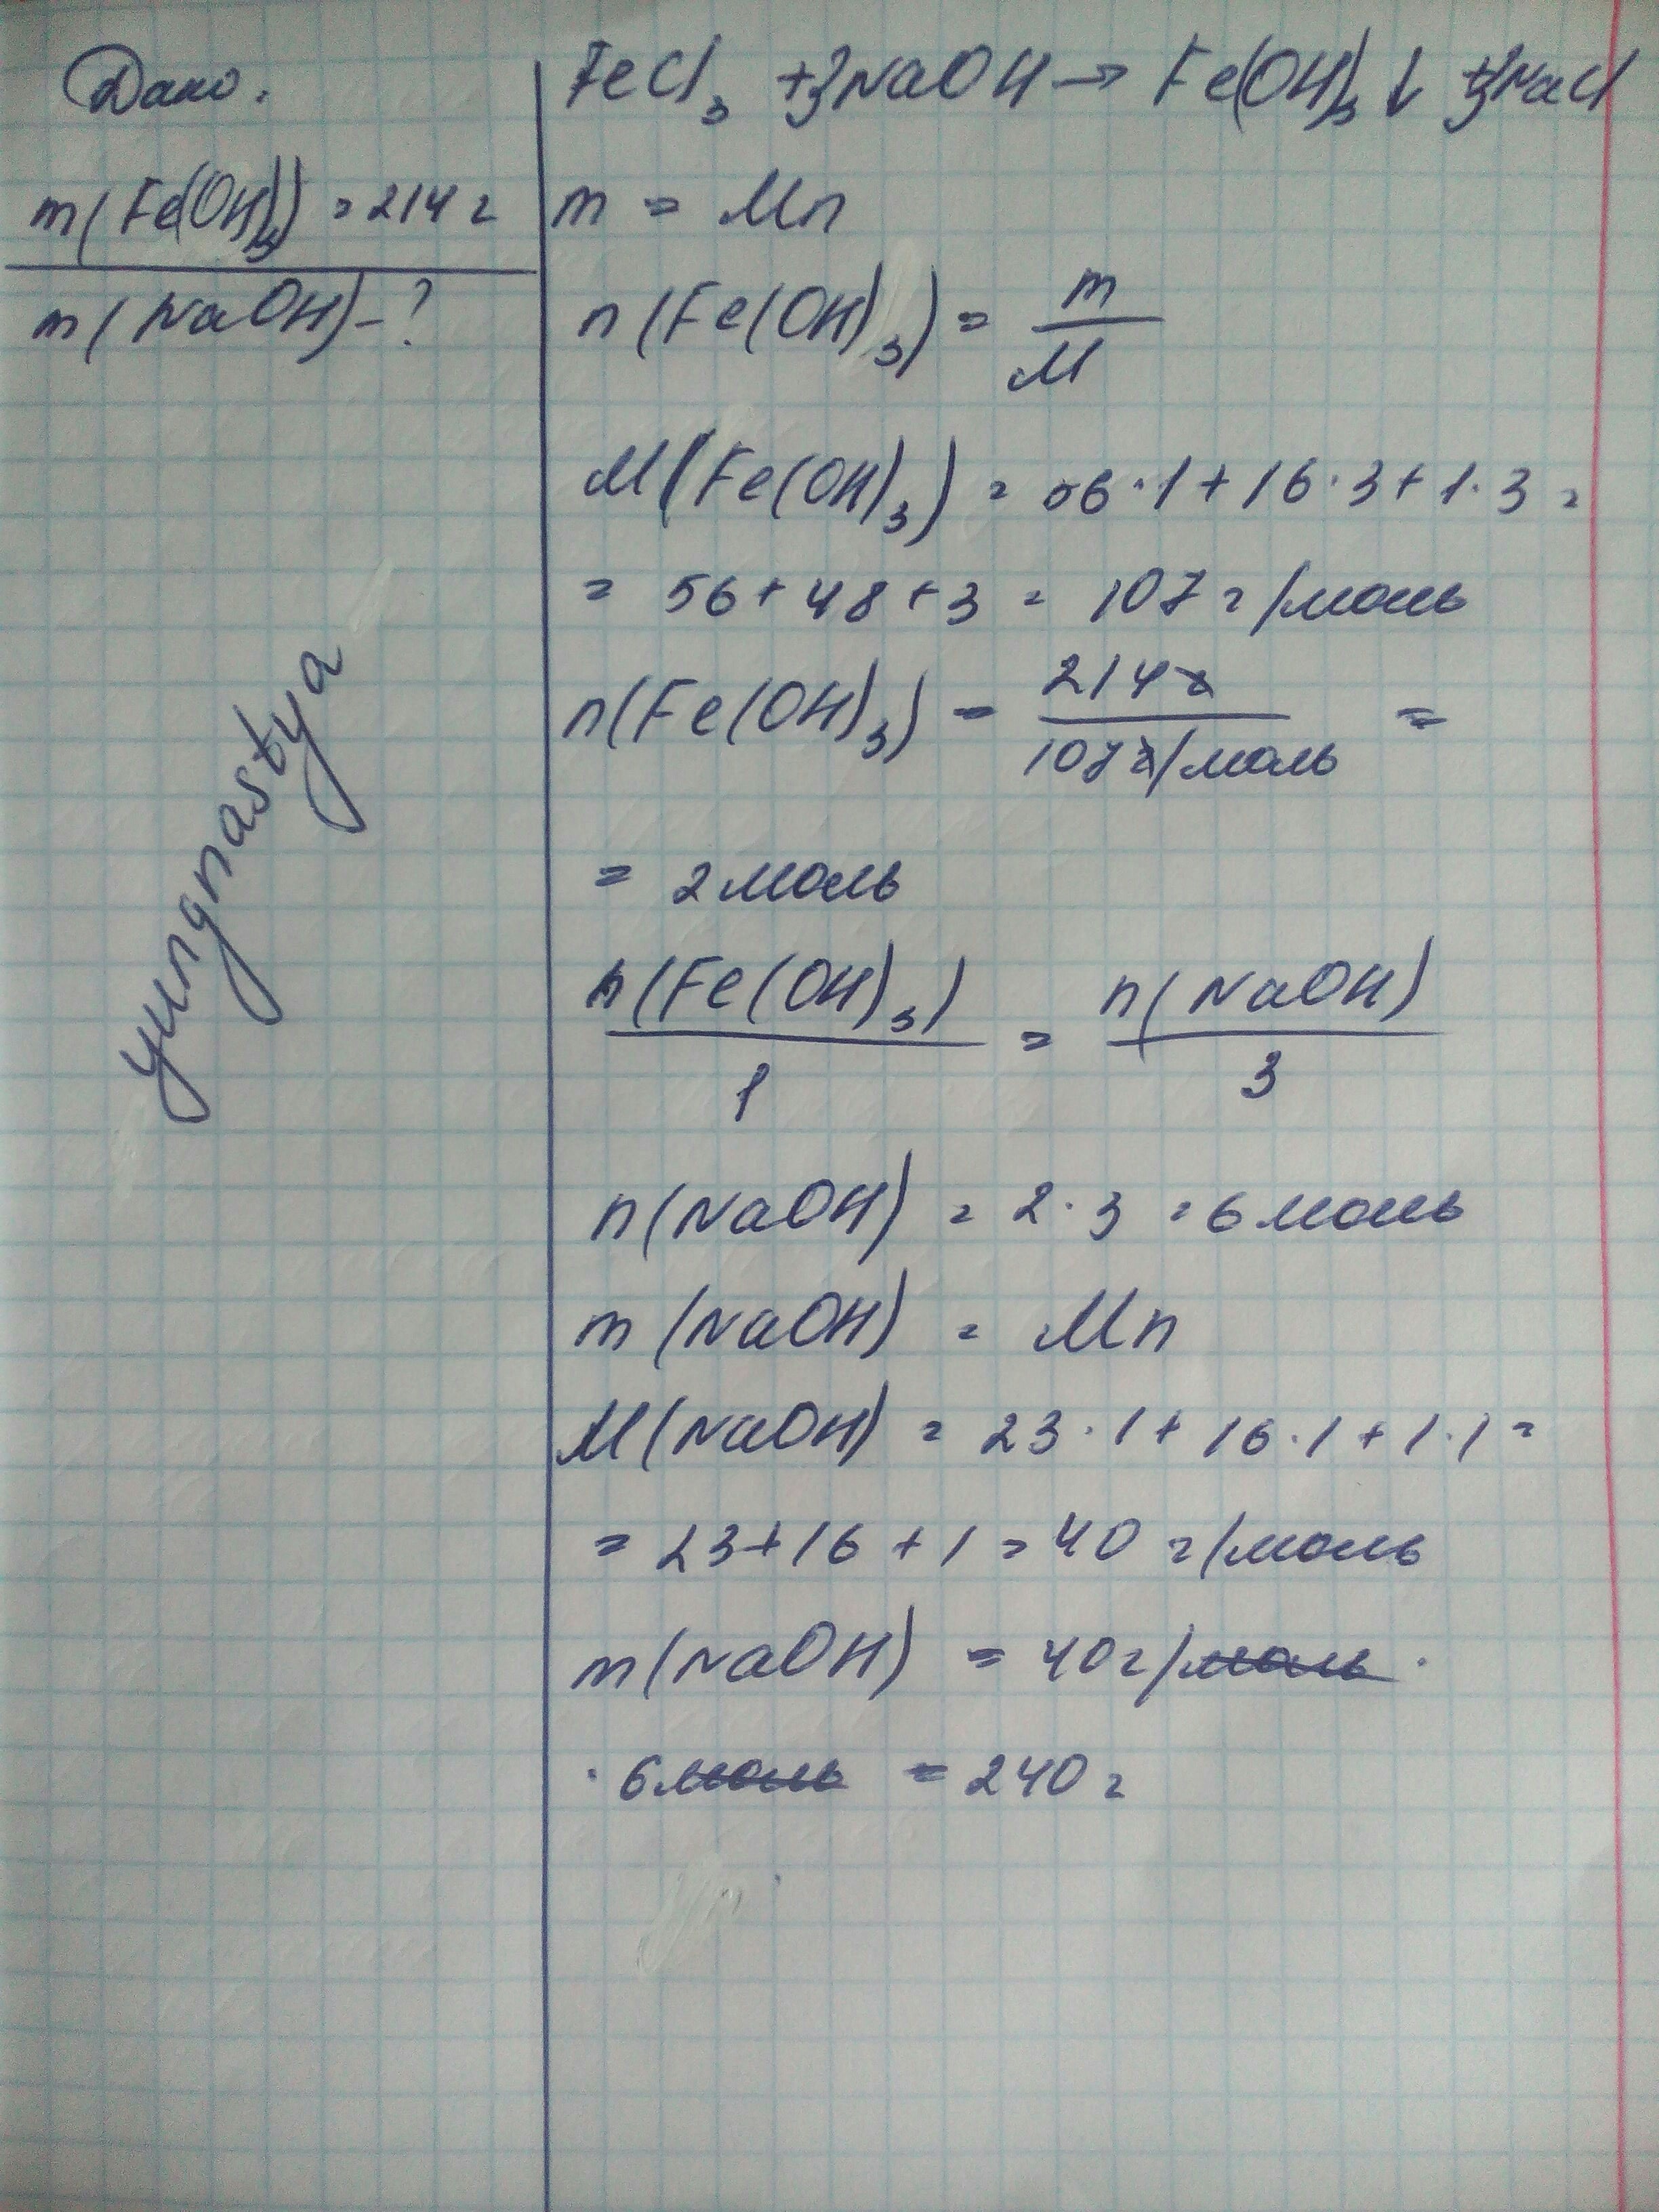 Дано:
m(Fe(OH)₃) = 214 г
m(NaOH) - ?
yungnastya
FeCl₃ + 3NaOH → Fe(OH)₃↓ + 3NaCl
m = Mn
n(Fe(OH)₃) = m/M
M(Fe(OH)₃) = 56·1 + 16·3 + 1·3 =
= 56 + 48 + 3 = 107 г/моль
n(Fe(OH)₃) = 214г / 107г/моль =
= 2 моль
n(Fe(OH)₃)/1 = n(NaOH)/3
n(NaOH) = 2·3 = 6 моль
m(NaOH) = Mn
M(NaOH) = 23·1 + 16·1 + 1·1 =
= 23 + 16 + 1 = 40 г/моль
m(NaOH) = 40 г/моль ·
· 6 моль = 240 г